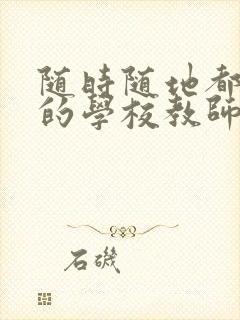 随時随地都
的學校教師
石磯